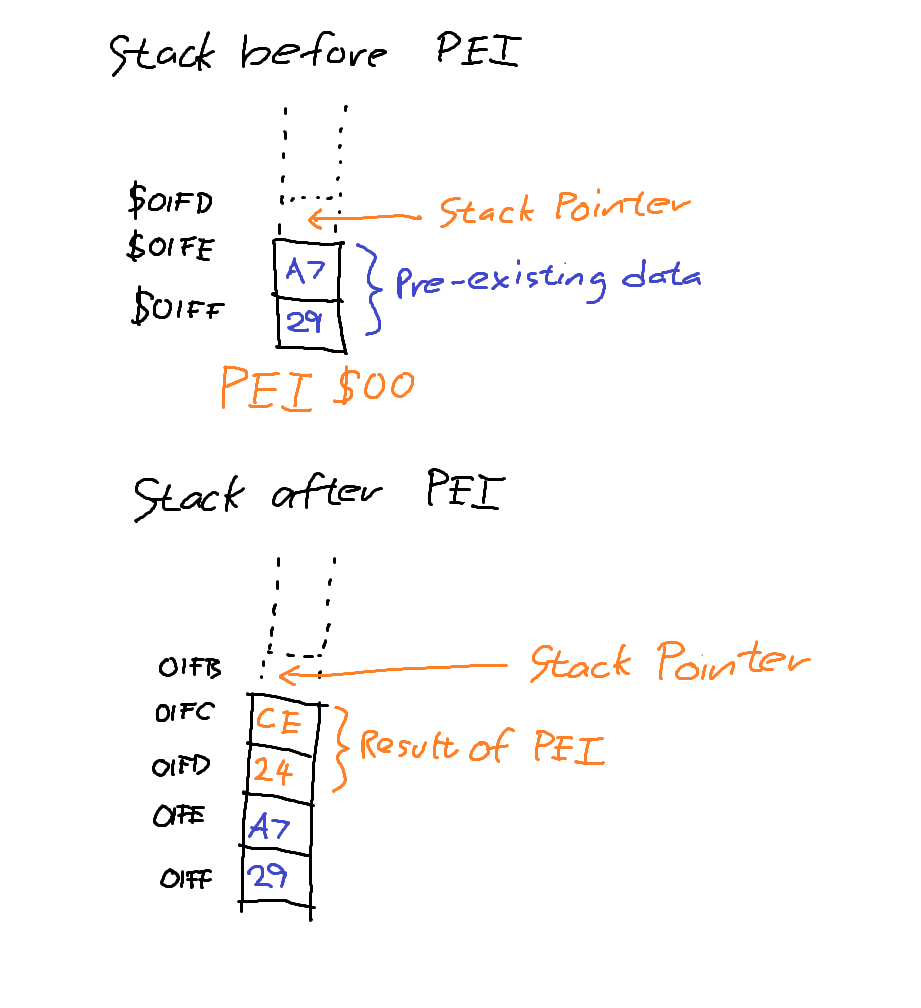 Stack before PEI
$01FD
Stack Pointer
$01FE
A7
Pre-existing data
$01FF
29
PEI $00
Stack after PEI
01FB
Stack Pointer
01FC
CE
Result of PEI
01FD
24
01FE
A7
01FF
29